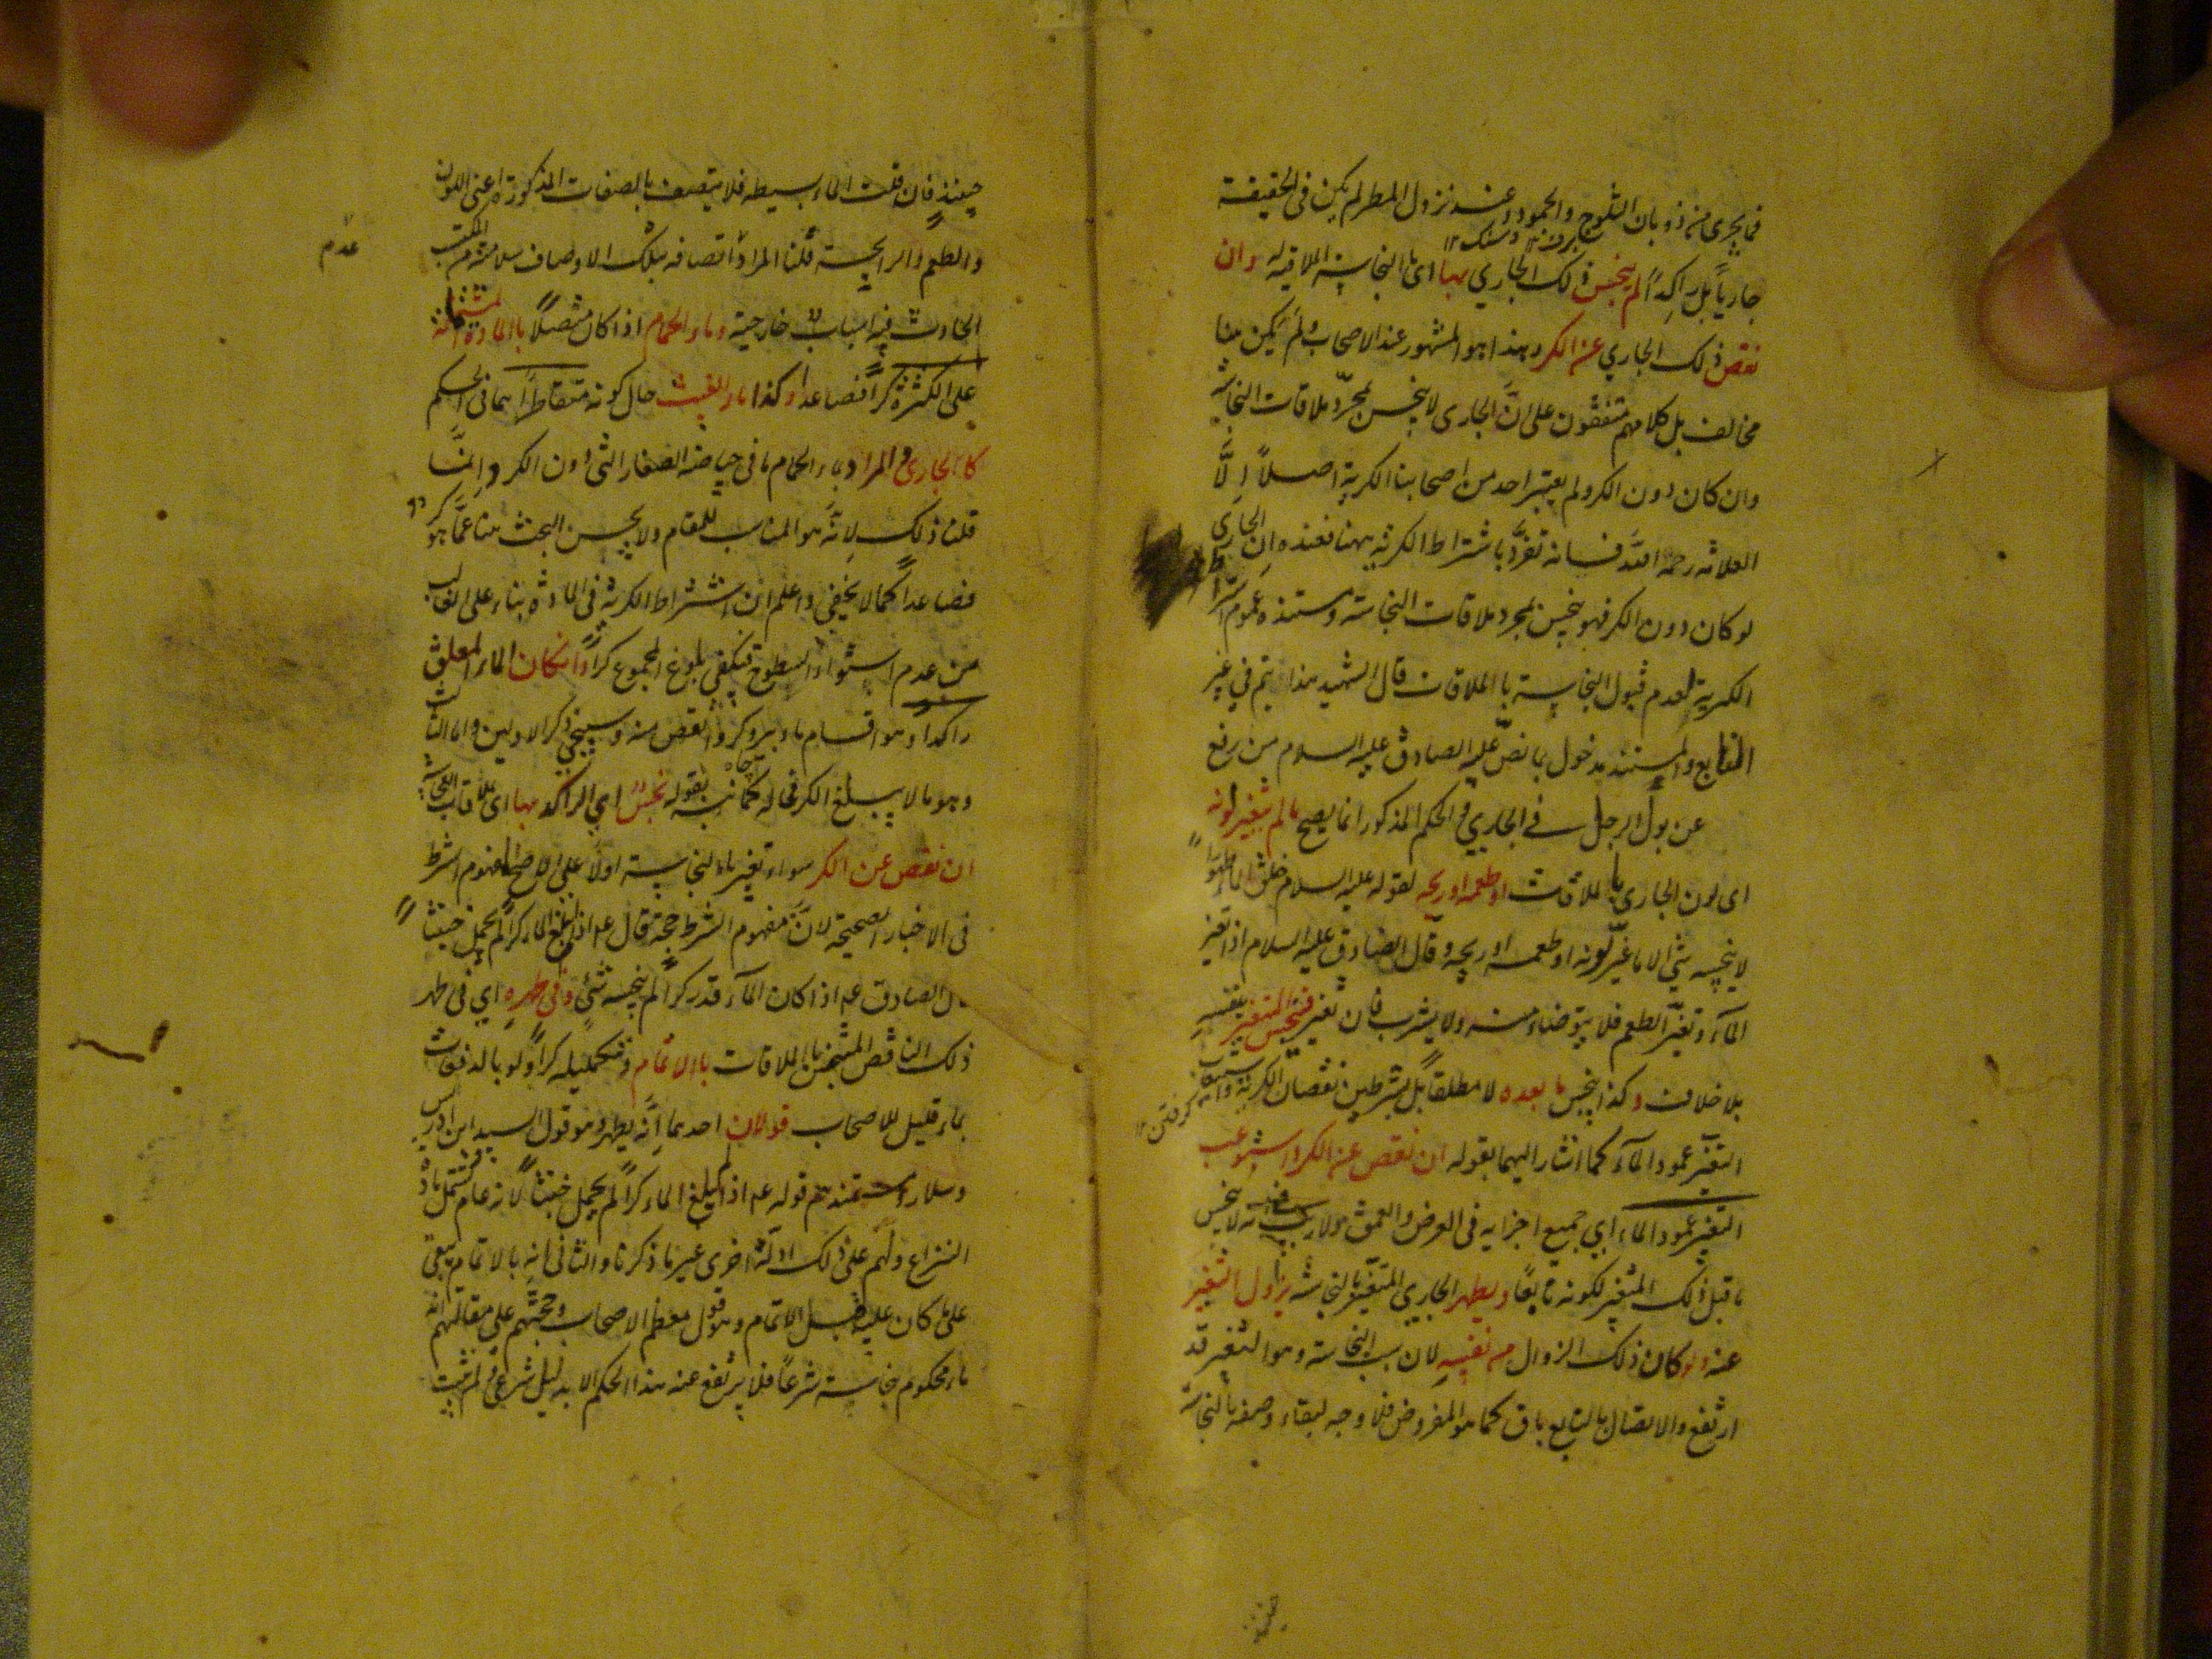 فما يجرى من ذوبان الثلوج والجمود وعند نزول المطر لم يكن فى الحقيقة
برف ١٢
جارياً بل راكداً لم ينجس ذلك الجاري بها اى بالنجاسة الملاقية له وان
نقص ذلك الجاري عن الكر وهذا هو المشهور عند الاصحاب ولم يكن هنا
مخالف بل كلامهم متفقون على انَّ الجارى لا ينجس بمجرّد ملاقات النجاسة
وان كان دون الكر ولم يعتبر احد من اصحابنا الكرية اصلاً اِلَّا
العلامه رحمه اللّٰه فانه تفرَّد باشتراط الكرية ههنا فعنده ان الجاري
لو كان دون الكر فهو ينجس بمجرد ملاقات النجاسة ومستنده عموم اشتراط
الكرية لعدم قبول النجاسة بالملاقات قال الشهيد هذا يتم في غير
النابع والمستند مدخول بما نصّ عليه الصادق عليه السلام من رفع
عن بول الرجل في الجاري والحكم المذكور انما يصح ما لم يتغير لونه
اى لون الجارى بالملاقات او طعمه او ريحه لقوله عليه السلام خلق الماء طهوراً
لا ينجسه شئ الا ما غيّر لونه او طعمه او ريحه وقال الصادق عليه السلام اذا تغير
المآء وتغيّر الطعم فلا يتوضاء منه ولا يشرب فان تغير فينجس المتغير بنفسه
بلا خلاف وكذا ينجس ما بعده لا مطلقاً بل بشرطين نقصان الكرية واستيعاب
گرفتن ١٢
التغيّر عمود المآء كما اشار اليهما بقوله ان نقص عن الكر واستوعب
التغير عمود الماء اي جميع اجزايه فى العرض والعمق ولا ريب فى انه لا ينجس
ما قبل ذلك المتغير لكونه نابعًا ويطهر الجاري المتغير بالنجاسة بزوال التغير
عنه ولو كان ذلك الزوال من نفسه لان سبب النجاسة وهو التغير قد
ارتفع والاتصال بالنابع باق كما هو المفروض فلا وجه لبقاء وصفه بالنجاسة
حينئذ
حينئذ فان قلت الماء بسيطه فلا يتصف بالصفات المذكورة اعنى اللون
والطعم والرايحة قلنا المراد اتصافه بتلك الاوصاف سلامته من المكتب
عدم
الحادث فيه باسباب خارجية وماء الحمام اذا كان متصلاً بالمادة المشتملة
على الكثرة كراً فصاعداً وكذا ماء الغيث حال كونه متقاطراً هما فى الحكم
كالجاري والمراد بماء الحمام ما فى حياضه الصغار التى دون الكر وانَّما
قلنا ذلك لانَّه هو المناسب للمقام ولا يحسن البحث هنا عمَّا هو كر
فصاعداً كما لا يخفي واعلم ان اشتراط الكرية فى المادة بناء على الغالب
من عدم استواء السطوح فيكفي بلوغ المجموع كراً وان كان الماء المطلق
راكداً وهو اقسام ماء بير وكر وانقص منه وسيجئ ذكر الاولين واما الثالث
وهو ما لا يبلغ الكر فحاله كما نبه بقوله نجس اي الراكد بها اى بملاقات النجاسة
ان نقص عن الكر سواء تغير بالنجاسة اولا على الاصح لمفهوم الشرط
فى الاخبار الصحيحة لانَّ مفهوم الشرط حجة قال عم اذا بلغ الماء كراً لم يحمل خبثاً
قال الصادق عم اذا كان المآء قدر كر لم ينجسه شئ وفى طهره اي فى طهر
ذلك الناقص المتنجس بالملاقات بالاتمام وتكميله كراً ولو بالدفعات
بماء قليل للاصحاب قولان احدهما انَّه يطهر وهو قول السيد ابن ادريس
وسلار ومستندهم قوله عم اذا بلغ الماء كراً لم يحمل خبثاً لانه عام فيشتمل
النزاع ولهم على ذلك ادلّة اخرى غير ما ذكرنا والثانى انه بالاتمام يبقى
على ما كان عليه قبل الاتمام وهو قول معظم الاصحاب وحجّتهم على مقالتهم انه
ماء محكوم بنجاسته شرعاً فلا يرتفع عنه هذا الحكم الا بدليل شرعى ولم يثبت